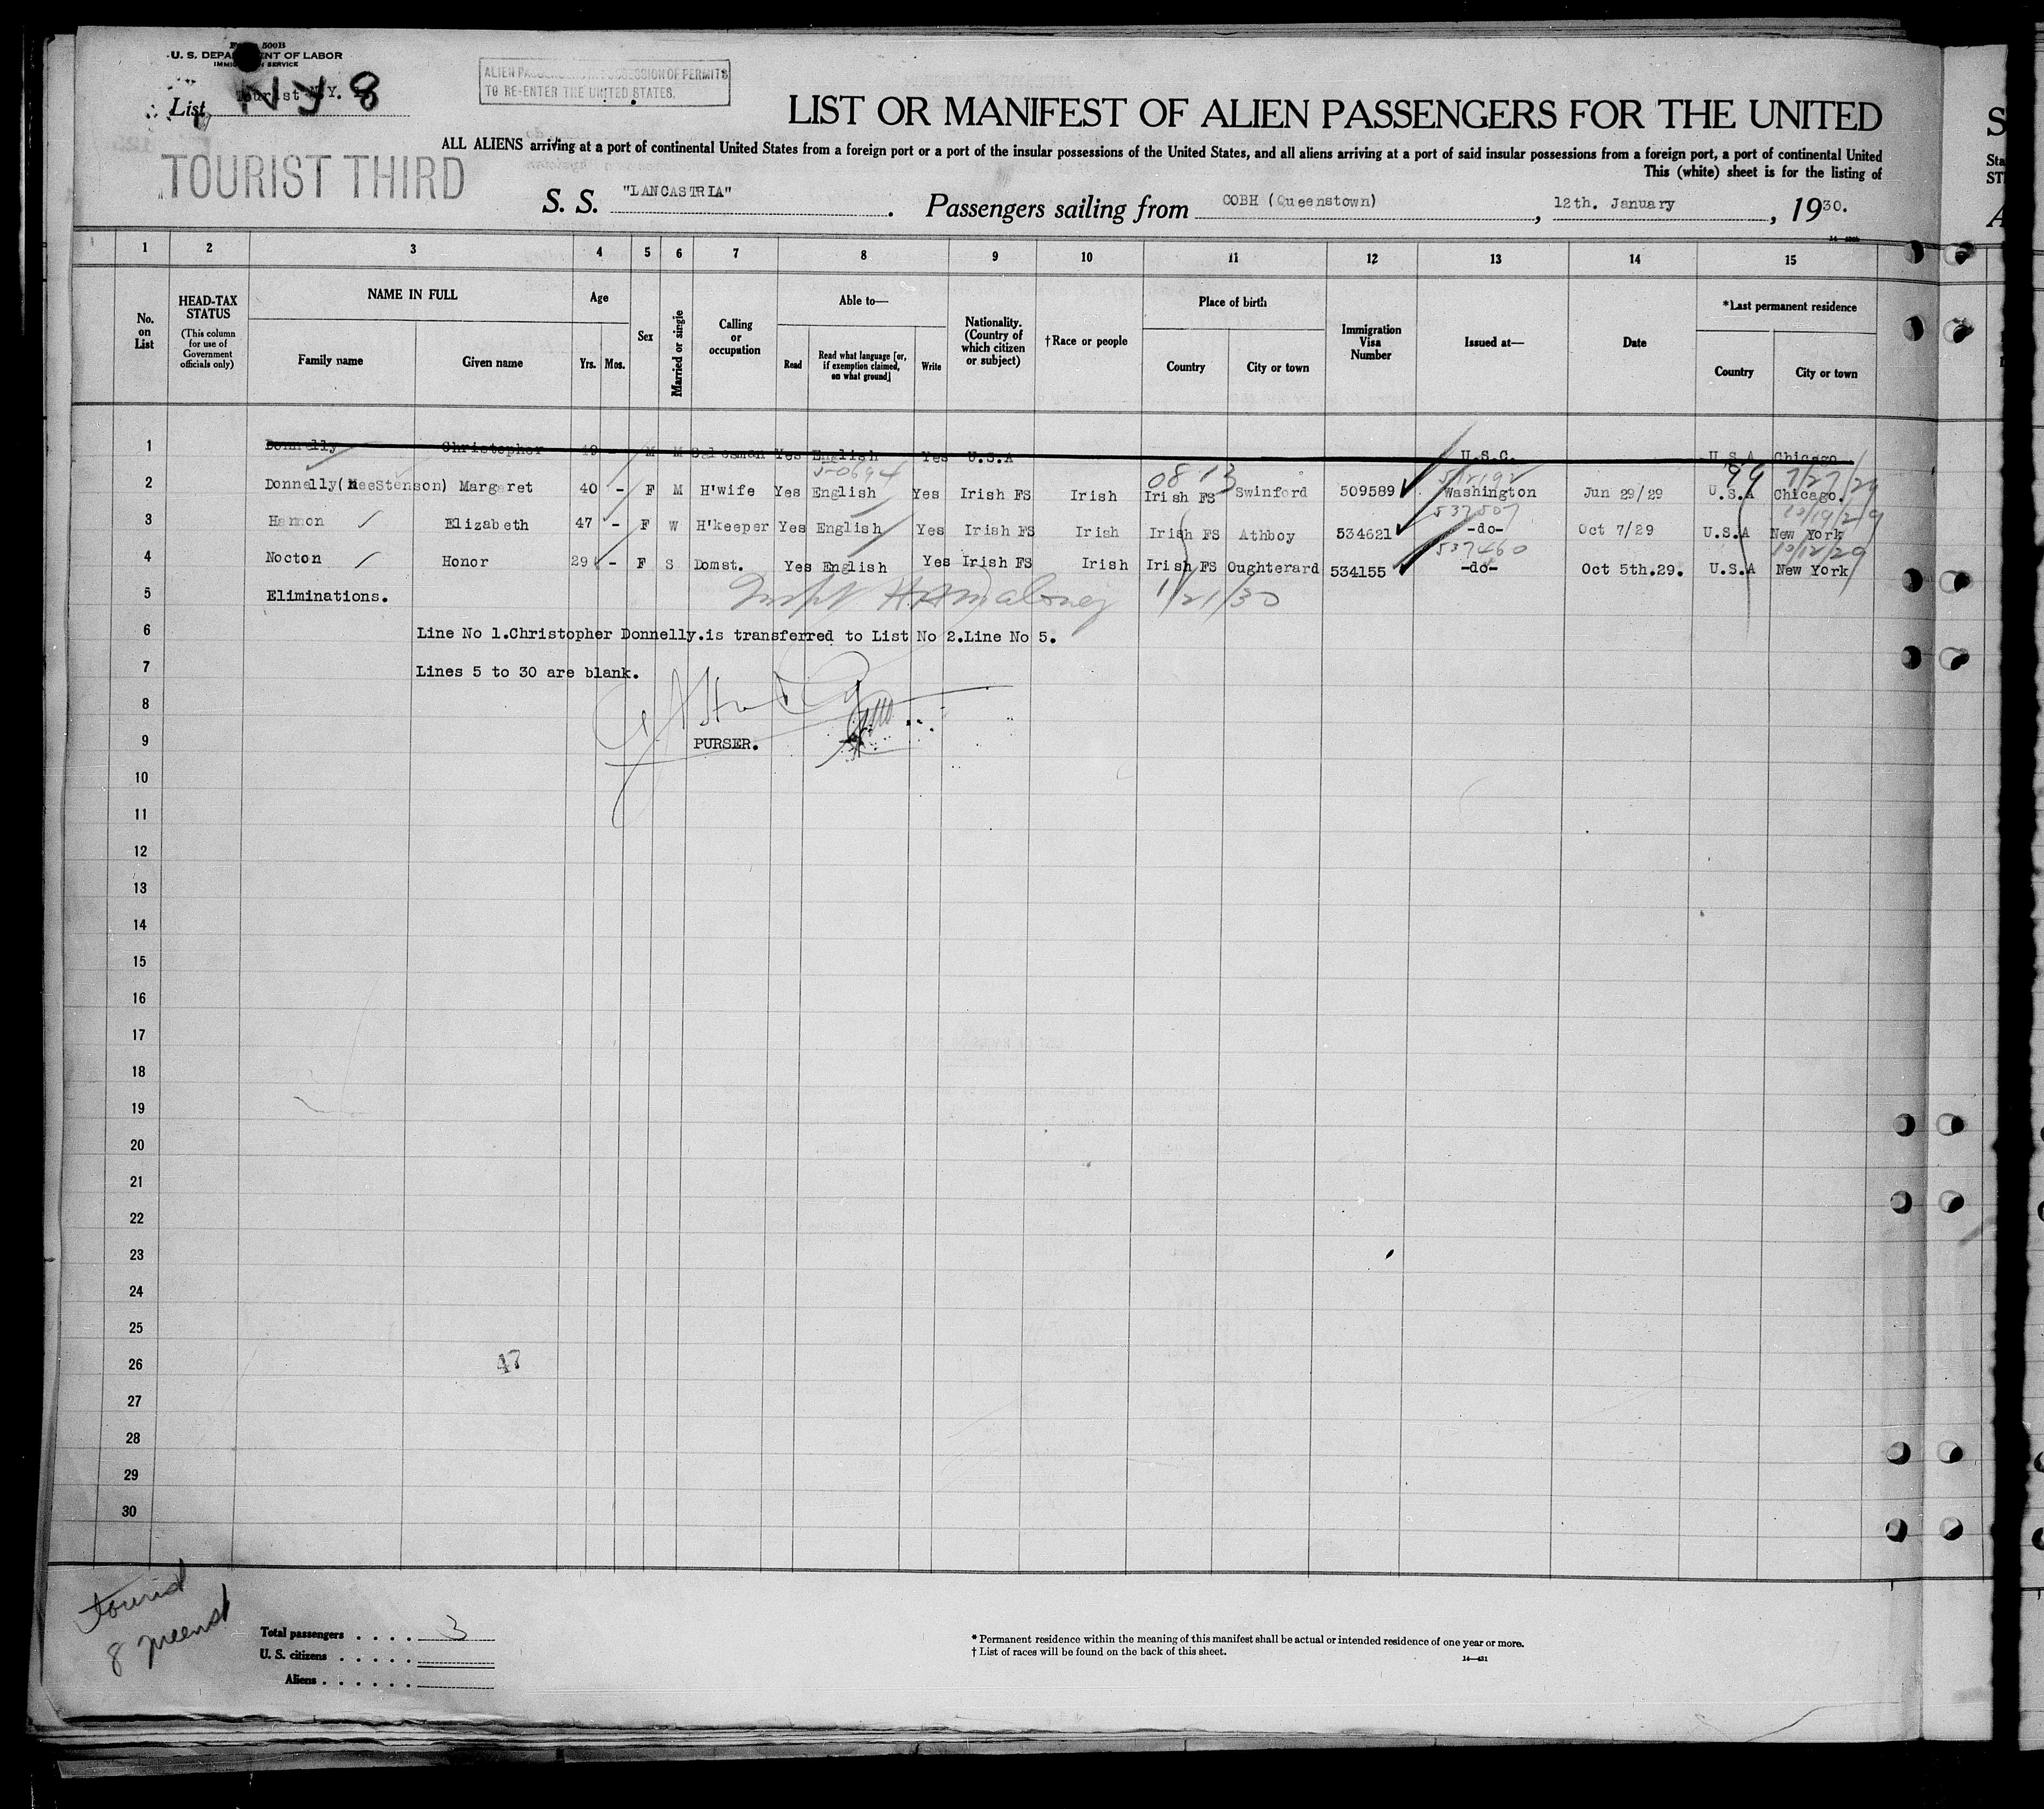 U. S. DEPARTMENT OF LABOR
List Tourist N.Y. NY 8
ALIEN PASSENGERS IN POSSESSION OF PERMITS
TO RE-ENTER THE UNITED STATES.
TOURIST THIRD
LIST OR MANIFEST OF ALIEN PASSENGERS FOR THE UNITED
ALL ALIENS arriving at a port of continental United States from a foreign port or a port of the insular possessions of the United States, and all aliens arriving at a port of said insular possessions from a foreign port, a port of continental United
This (white) sheet is for the listing of
S. S. "LANCASTRIA". Passengers sailing from COBH (Queenstown), 12th. January, 1930.
1 2 3 4 5 6 7 8 9 10 11 12 13 14 15
No. on List
HEAD-TAX STATUS
(This column for use of Government officials only)
NAME IN FULL
Family name Given name
Age
Yrs. Mos.
Sex
Married or single
Calling or occupation
Able to—
Read Read what language [or, if exemption claimed, on what ground] Write
Nationality. (Country of which citizen or subject)
†Race or people
Place of birth
Country City or town
Immigration Visa Number
Issued at—
Date
*Last permanent residence
Country City or town
1 Donnelly Christopher 49 - M M Salesman Yes English Yes U.S.A U.S.C. U.S.A Chicago.
5-0694 0813 512192 99 7/27/29
2 Donnelly(NeeStenson) Margaret 40 - F M H'wife Yes English Yes Irish FS Irish Irish FS Swinford 509589 Washington Jun 29/29 U.S.A Chicago.
537507 10/19/29
3 Hannon Elizabeth 47 - F W H'keeper Yes English Yes Irish FS Irish Irish FS Athboy 534621 -do- Oct 7/29 U.S.A New York
537460 10/12/29
4 Nocton Honor 29 - F S Domst. Yes English Yes Irish FS Irish Irish FS Oughterard 534155 -do- Oct 5th.29. U.S.A New York
5 Eliminations. 1/21/30
6 Line No 1.Christopher Donnelly.is transferred to List No 2.Line No 5.
7 Lines 5 to 30 are blank.
8
9 PURSER.
10
11
12
13
14
15
16
17
18
19
20
21
22
23
24
25
26 47
27
28
29
30
Tourist
8 Queenst
Total passengers . . . . 3
U. S. citizens . . . . .
Aliens . . . . . .
* Permanent residence within the meaning of this manifest shall be actual or intended residence of one year or more.
† List of races will be found on the back of this sheet.
14—431